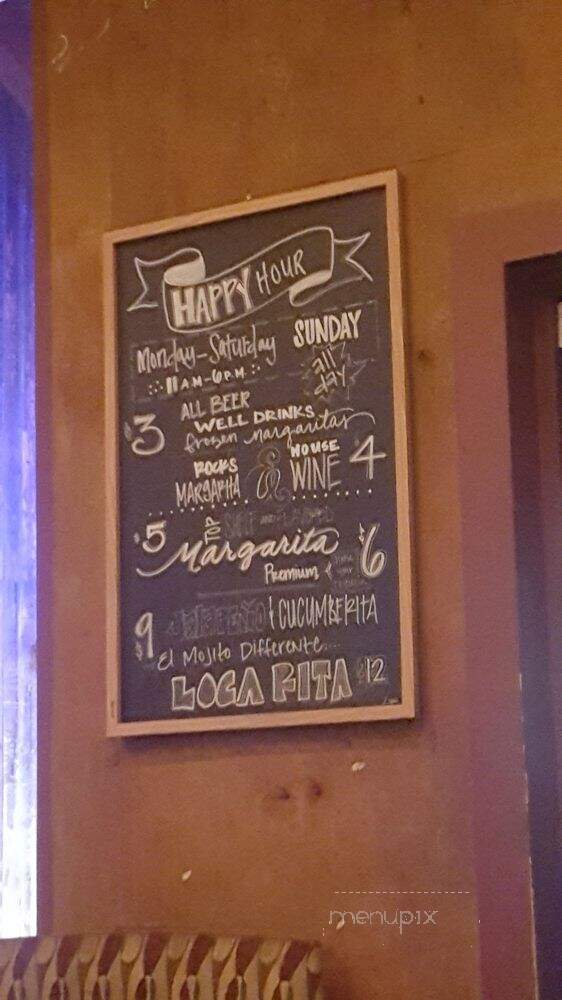 HAPPY HOUR
Monday-Saturday
11AM-6PM
SUNDAY
all day
$3 ALL BEER
WELL DRINKS
frozen margaritas
ROCKS MARGARITA & HOUSE WINE $4
$5 TOP
Margarita
Premium $6
$9 JALAPENO / CUCUMBERITA
El Mojito Differente...
LOCA RITA $12
menupix